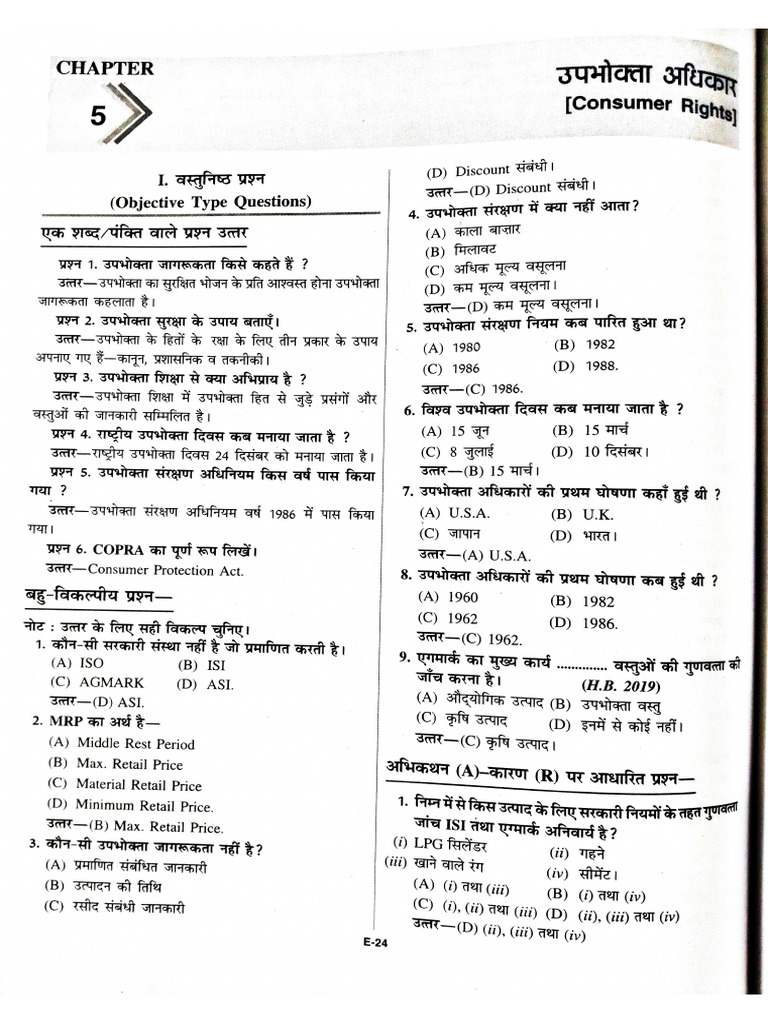 CHAPTER
5
उपभोक्ता अधिकार
[Consumer Rights]
I. वस्तुनिष्ठ प्रश्न
(Objective Type Questions)
एक शब्द/पंक्ति वाले प्रश्न उत्तर
प्रश्न 1. उपभोक्ता जागरूकता किसे कहते हैं ?
उत्तर—उपभोक्ता का सुरक्षित भोजन के प्रति आश्वस्त होना उपभोक्ता
जागरूकता कहलाता है।
प्रश्न 2. उपभोक्ता सुरक्षा के उपाय बताएँ।
उत्तर—उपभोक्ता के हितों के रक्षा के लिए तीन प्रकार के उपाय
अपनाए गए हैं—कानून, प्रशासनिक व तकनीकी।
प्रश्न 3. उपभोक्ता शिक्षा से क्या अभिप्राय है ?
उत्तर—उपभोक्ता शिक्षा में उपभोक्ता हित से जुड़े प्रसंगों और
वस्तुओं की जानकारी सम्मिलित है।
प्रश्न 4. राष्ट्रीय उपभोक्ता दिवस कब मनाया जाता है ?
उत्तर—राष्ट्रीय उपभोक्ता दिवस 24 दिसंबर को मनाया जाता है।
प्रश्न 5. उपभोक्ता संरक्षण अधिनियम किस वर्ष पास किया
गया ?
उत्तर—उपभोक्ता संरक्षण अधिनियम वर्ष 1986 में पास किया
गया।
प्रश्न 6. COPRA का पूर्ण रूप लिखें।
उत्तर—Consumer Protection Act.
बहु-विकल्पीय प्रश्न—
नोट : उत्तर के लिए सही विकल्प चुनिए।
1. कौन-सी सरकारी संस्था नहीं है जो प्रमाणित करती है।
(A) ISO (B) ISI
(C) AGMARK (D) ASI.
उत्तर—(D) ASI.
2. MRP का अर्थ है—
(A) Middle Rest Period
(B) Max. Retail Price
(C) Material Retail Price
(D) Minimum Retail Price.
उत्तर—(B) Max. Retail Price.
3. कौन-सी उपभोक्ता जागरूकता नहीं है?
(A) प्रमाणित संबंधित जानकारी
(B) उत्पादन की तिथि
(C) रसीद संबंधी जानकारी
(D) Discount संबंधी।
उत्तर—(D) Discount संबंधी।
4. उपभोक्ता संरक्षण में क्या नहीं आता?
(A) काला बाज़ार
(B) मिलावट
(C) अधिक मूल्य वसूलना
(D) कम मूल्य वसूलना।
उत्तर—(D) कम मूल्य वसूलना।
5. उपभोक्ता संरक्षण नियम कब पारित हुआ था?
(A) 1980 (B) 1982
(C) 1986 (D) 1988.
उत्तर—(C) 1986.
6. विश्व उपभोक्ता दिवस कब मनाया जाता है ?
(A) 15 जून (B) 15 मार्च
(C) 8 जुलाई (D) 10 दिसंबर।
उत्तर—(B) 15 मार्च।
7. उपभोक्ता अधिकारों की प्रथम घोषणा कहाँ हुई थी ?
(A) U.S.A. (B) U.K.
(C) जापान (D) भारत।
उत्तर—(A) U.S.A.
8. उपभोक्ता अधिकारों की प्रथम घोषणा कब हुई थी ?
(A) 1960 (B) 1982
(C) 1962 (D) 1986.
उत्तर—(C) 1962.
9. एगमार्क का मुख्य कार्य .............. वस्तुओं की गुणवत्ता की
जाँच करना है। (H.B. 2019)
(A) औद्योगिक उत्पाद (B) उपभोक्ता वस्तु
(C) कृषि उत्पाद (D) इनमें से कोई नहीं।
उत्तर—(C) कृषि उत्पाद।
अभिकथन (A)–कारण (R) पर आधारित प्रश्न—
1. निम्न में से किस उत्पाद के लिए सरकारी नियमों के तहत गुणवत्ता
जांच ISI तथा एग्मार्क अनिवार्य है?
(i) LPG सिलेंडर (ii) गहने
(iii) खाने वाले रंग (iv) सीमेंट।
(A) (i) तथा (iii) (B) (i) तथा (iv)
(C) (i), (ii) तथा (iii) (D) (ii), (iii) तथा (iv)
उत्तर—(D) (ii), (iii) तथा (iv)
E-24